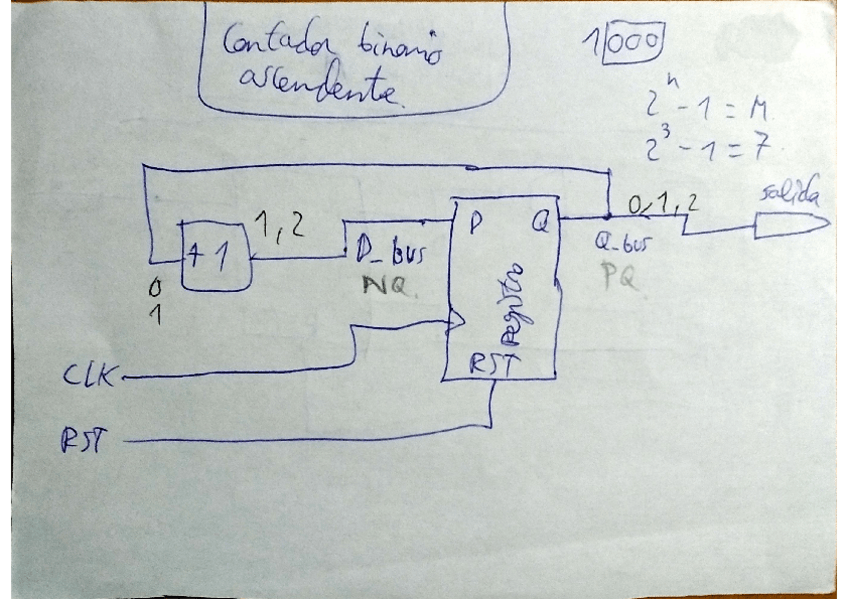 Contador binario
ascendente.
1000
2^n - 1 = M
2^3 - 1 = 7
salida
0,1,2
1,2
+1
D_bus
NQ
D
Q
Q_bus
PQ
Registro
0
1
CLK
RST
RST